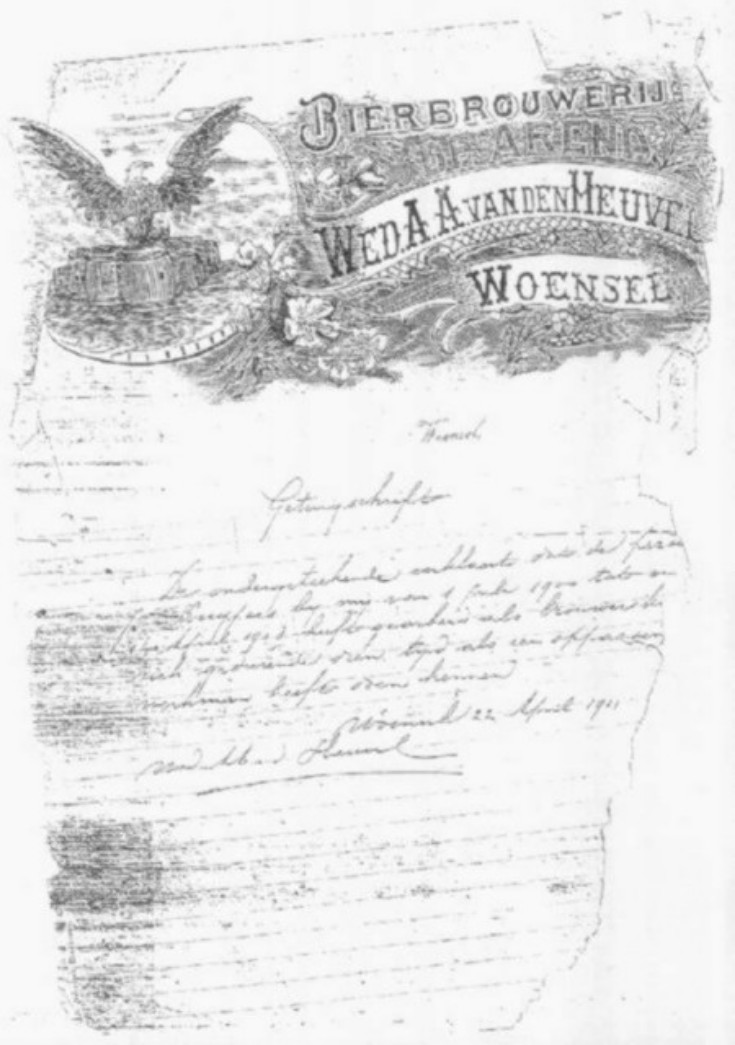 BIERBROUWERIJ
DE AREND
WED A A VAN DEN HEUVEL
WOENSEL
Woensel
Getuigschrift
De ondergeteekende verklaart dat de
by my van 1 July 1900 tot en
April heeft gewerkt als brouwer
zich gedurende dien tyd als een oppassen
werkman heeft doen kennen
Woensel 22 April 1901
Wed A A v d Heuvel